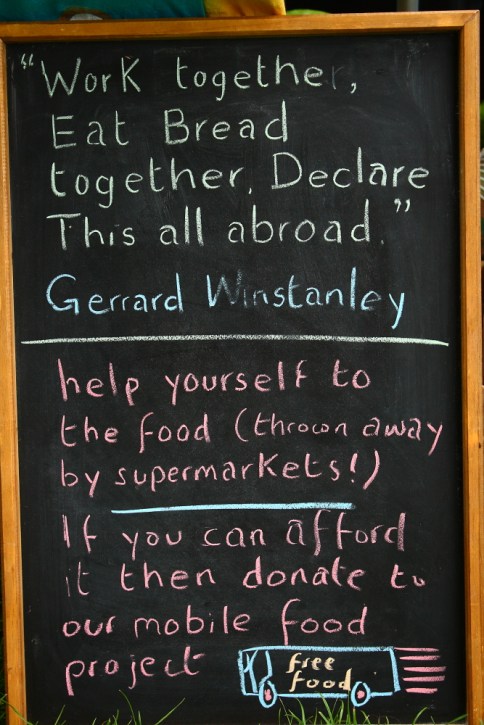 "Work together,
Eat Bread
together, Declare
This all abroad."
Gerrard Winstanley
help yourself to
the food (thrown away
by supermarkets!)
If you can afford
it then donate to
our mobile food
project
free
food